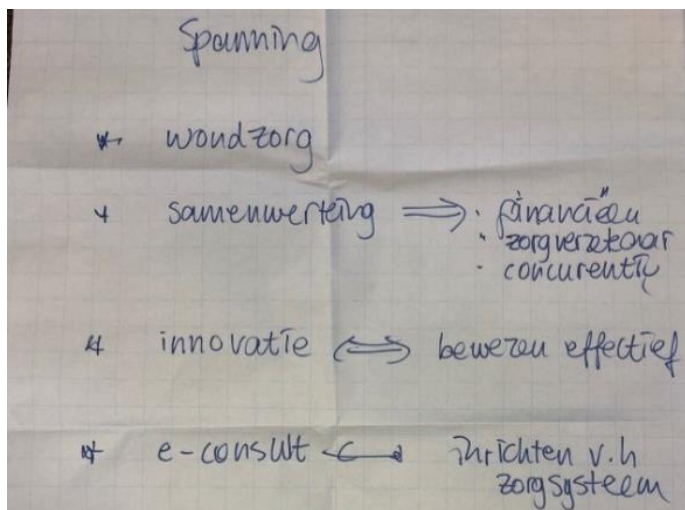 Spanning
* wondzorg
* samenwerking ⇒ · financiëen
· zorgverzekeraar
· concurentie
* innovatie ⇔ bewezen effectief
* e-consult ↔ inrichten v.h
zorgsysteem